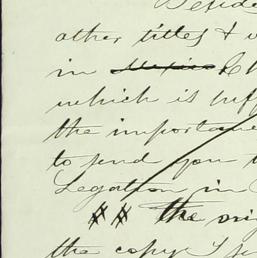 Beside
other titles & v
in Mexico & th
which is suff
the importance
to send you
Legation in
## the ori
the copy I se